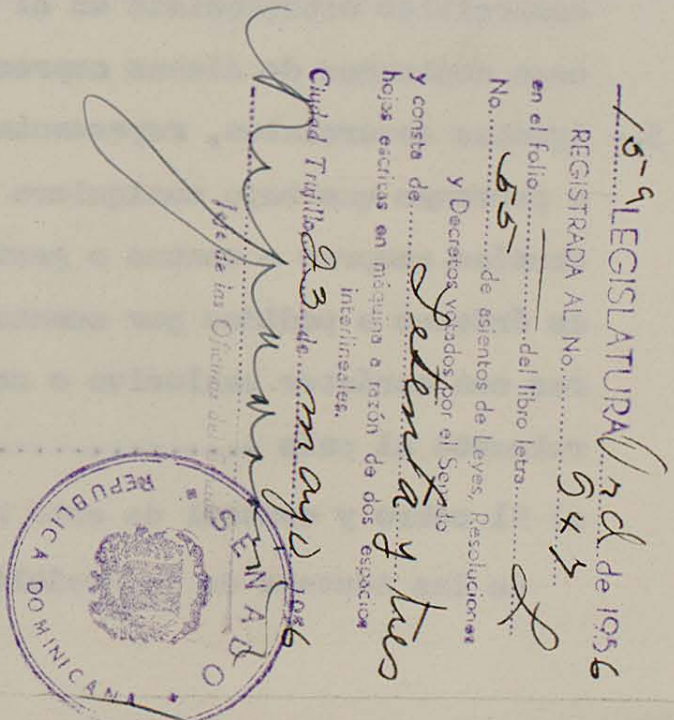 15ª LEGISLATURA Ord de 1956
REGISTRADA AL No. 943
en el folio del libro letra L
No. 55 de asientos de Leyes, Resoluciones
y Decretos votados por el Senado
y consta de Setenta y tres
hojas escritas en máquina a razón de dos espacios
interlineales.
Ciudad Trujillo 23 de mayo 1956
Jefe de las Oficinas del
SENADO
REPUBLICA DOMINICANA